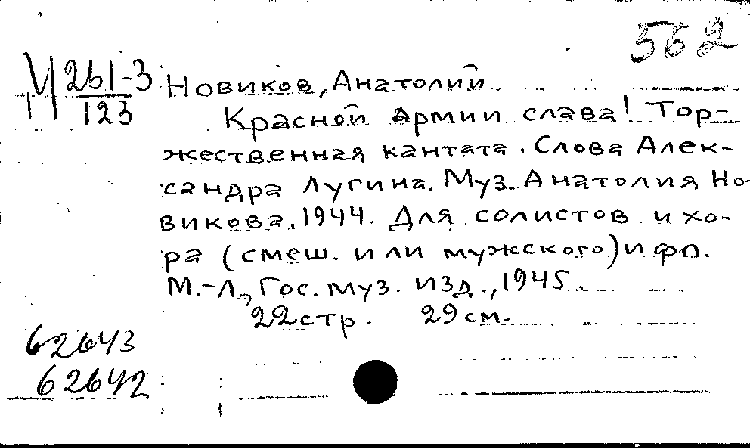 562
М 261-3
123
Новиков, Анатолий
Красной армии слава! Тор-
жественная кантата. Слова Алек-
сандра Лугина. Муз. Анатолия Но-
викова. 1944. Для солистов и хо-
ра (смеш. или мужского) и фп.
М.-Л., Гос. муз. изд., 1945
22 стр. 29 см.
62643
62642